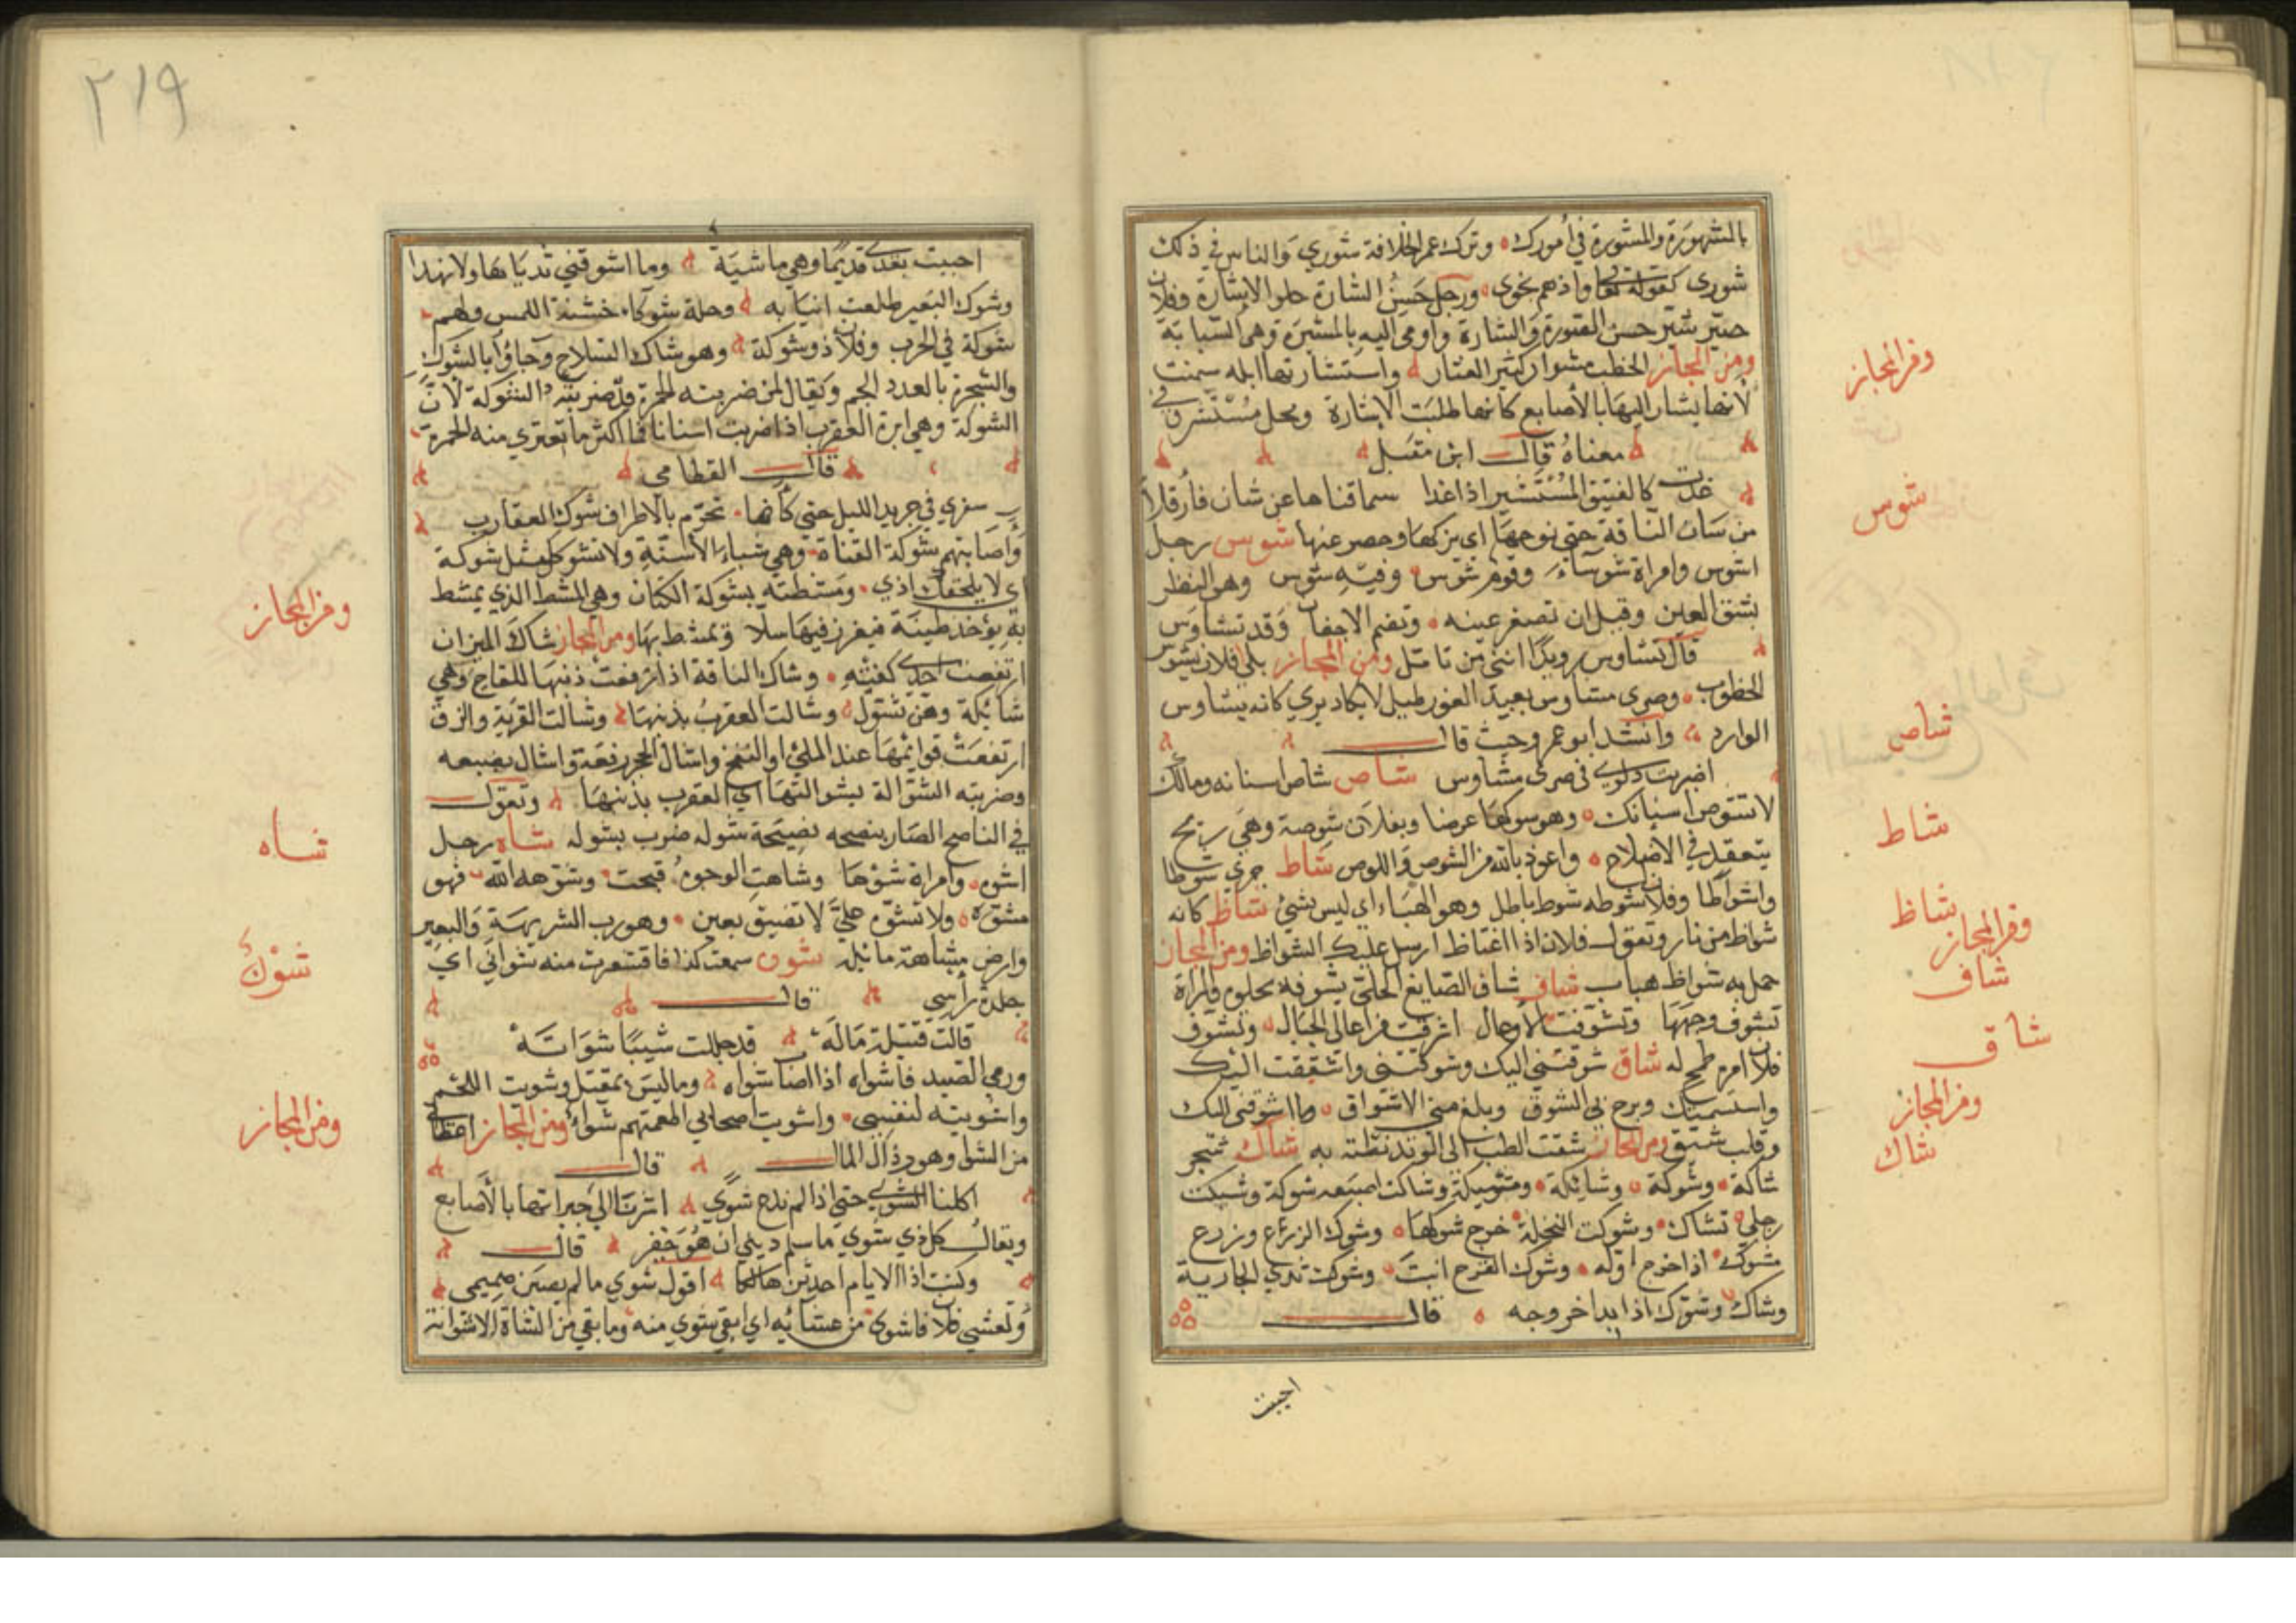 بالمشهورة والمشورة في أمورك وترك عمر الخلافة شورى والناس في ذلك
شورى كقوله تعالى واذ هم نجوى ورجل حسن الشارة حلو الاشارة وفلان
صير شير حسن الصورة والشارة واومى اليه بالمشيرة وهى السبابة
ومن المجاز الخطب مشوار كثير العثار واستشارتها ابله سمنت
لأنها يشار اليها بالأصابع كأنها طلبت الاشارة وفحل مستشير في
معناه قال ابن مقبل
غدت كالفنيق المستشير اذا غدا سما قناها عن شان فارقلا
من سان الناقة حتى نوخها اى بركها وحصر عنها شوس رجل
اشوس وامراة شوساء وقوم شوس وفيه شوس وهى النظر
بشق العين وقيل ان تصغر عينه وتضم الاجفان وقد تشاوس
قال تشاوس رويدا اننى من تامل ومن المجاز بلى فلان بشوس
الخطوب وصرى متشاوس بعيد الغور قليل لا يكاد يرى كانه يتشاوس
الوارد وانشد ابو عمرو حيث قال
اضربت دلوى فى صرى مشاوس شاص شاص اسنانه ومالك
لا تشوص اسنانك وهو سوكها عرضا وبفلان شوصة وهى ريح
يتعقد في الاضلاع واعوذ بالله من الشوص واللوص شاط جرى شوطا
واشواطا وفلان شوطه شوط باطل وهو الهباء اي ليس بشئ شاظ كانه
شواظ من نار وتقول فلان اذا اغتاظ ارسل عليك الشواظ ومن المجاز
حمل به شواظ هباب شاف شاف الصايغ الحلى يشوفه يجلوه والمراة
تشوف وجهها وتشوفت الاوعال اشرفت من اعالى الجبال وتشوف
فلان امره طمح له شاق شوقتنى اليك وشوقتنى واشتقت اليك
واستسميتك وبرح بى الشوق وبلغ منى الاشواق وما اشوقنى اليك
وقلب شيق ومن المجاز شقت الطنب الى الوتد نطته به شاك شجر
شاكة وشوكة وشايكة ومشيكة وشاكت اصبعه شوكة وشيكت
رجلي تشاك وشوكت النخلة خرج شوكها وشوك الزرع وزرع
مشوك اذا خرج اوله وشوك الفرخ انبت وشوكت ثدي الجارية
وشاك وشوك اذا بدا خروجه قال
احببت
ومن المجاز
شوس
شاص
شاط
شاظ
ومن المجاز
شاف
شاق
ومن المجاز
شاك
٢١٩
احببت بعدى قديما وهي ماشية وما اشوقني ثدياها ولا نهدا
وشوك البعير طلعت انيابه وحلة شوكاء خشنة اللمس ولهم
شوكة في الحرب وفلان ذو شوكة وهو شاك السلاح وجاؤا بالشوك
والشجر بالعدد الجم ويقال لمن ضربته الحمرة قد ضربته الشوكة لان
الشوكة وهي ابرة العقرب اذا ضربت انسانا فما اكثر ما تعترى منه الحمرة
قال القطامي
سرى في جريد الليل حتى كانما تخزم بالاطراف شوك العقارب
واصابتهم شوكة القناة وهي شباة الاسنة ولا تشوكك مثل شوكة
اى لا يلحقك اذي ومشطته بشوكة الكتان وهي المشط الذي يمشط
به يؤخذ طينة فيغرز فيها سلا ة يمشط بها ومن المجاز شاك الميزان
ارتفعت احدى كفتيه وشاك الناقة اذا رفعت ذنبها للقاح وهي
شايكة وهن تشول وشالت العقرب بذنبها وشالت القربة والزق
ارتفعت قوائمها عند الملئ او النفخ واشال الحجر رفعة واشال بضبعه
وضربته الشوالة بشوالتها اي العقرب بذنبها وتقول
في الناصح الضار ينصحه نصيحة شوله ضرب بشوله شاه رجل
اشوه وامراة شوها وشاهت الوجوه قبحت وشوهه الله فهو
مشوه ولا تشوه علي لا تضيق بعين وهو رب الشويهة والبعير
وارض مشاهة مائلة شوى سمعت كذا فاقشعرت منه شواتي اى
جلدة رأسي قال
قالت قتيلة ماله قد جللت شيبا شواته
ورمى الصيد فاشواه اذا اصاب شواه وما ليس بمقتل وشويت اللحم
واشويته لنفسي واشويت اصحابي اطعمتهم شواء ومن المجاز اعطاني
من الشوا وهو رذال المال قال
اكلنا الشوى حتى اذا لم ندع شوى اشرنا الى خيراتها بالأصابع
ويقال كل ذي شوى ما سلم ديني ان هو خفر قال
وكنت اذا الايام احدثن هالكا اقول شوى ما لم يصبن صميمي
وتعشى فلان فاشوى من عشائه اي ابقى شوى منه وما بقي من الشاة الا شواية
ومن المجاز
شاه
شوى
ومن المجاز